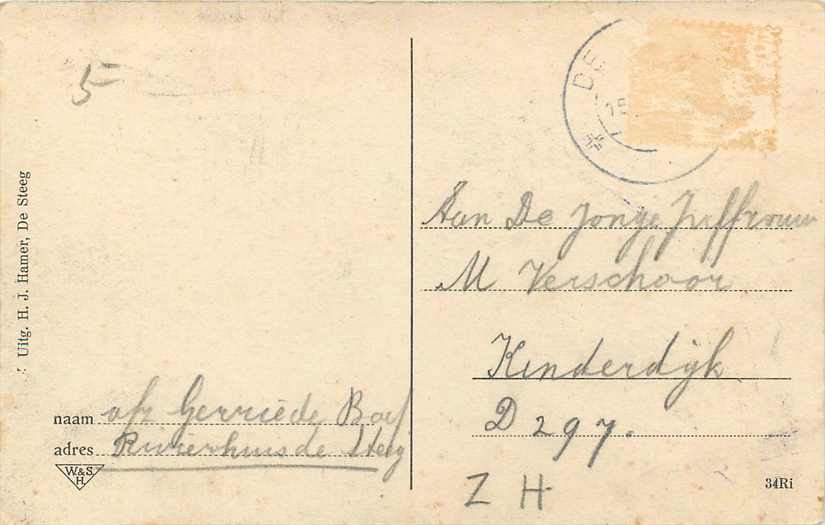 5
DE
15
Uitg. H. J. Hamer, De Steeg
Aan De Jonge Juffrouw
M Verschoor
Kinderdijk
D 297.
Z H
naam afz Gerriede
adres Rivierhuis de Steeg
W.&S.
H.
34Ri